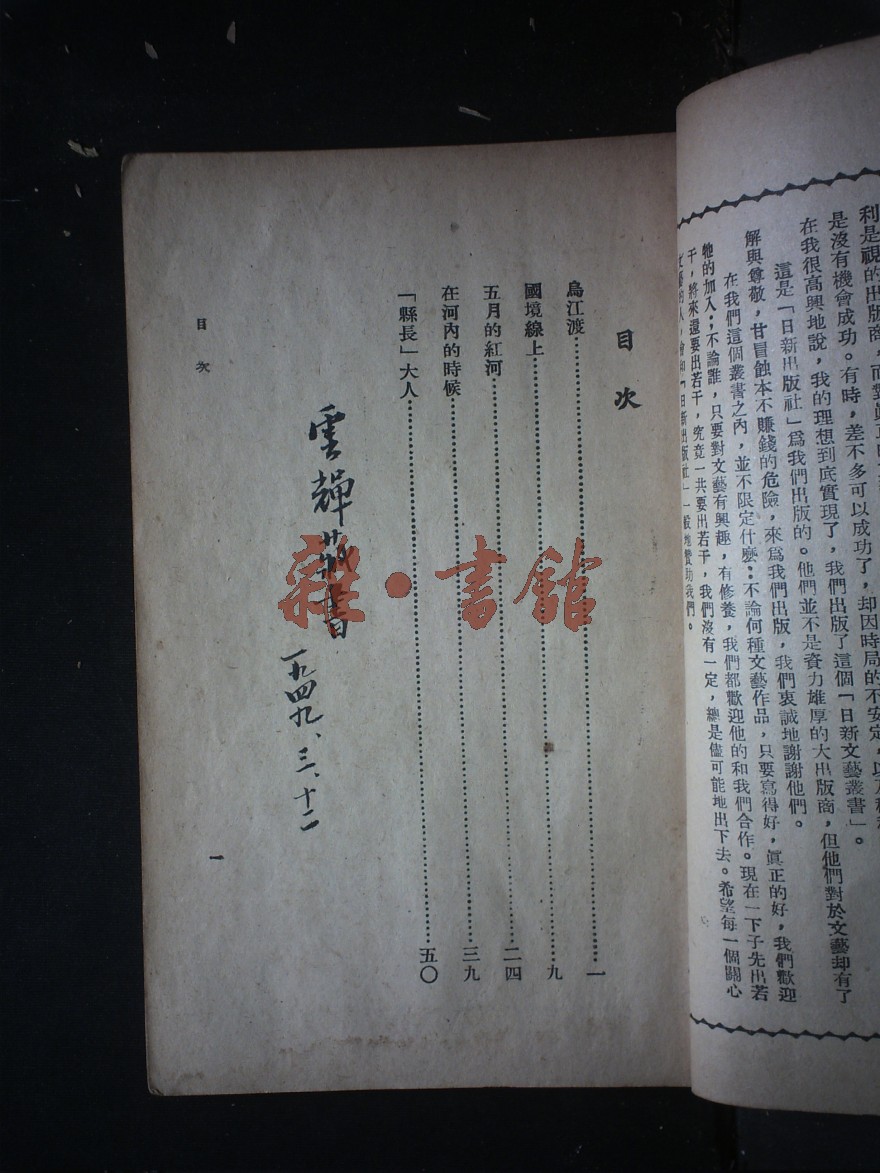 利是視的出版商，而對
是沒有機會成功。有時，差不多可以成功了，却因時局的不安定，以及種種
在我很高興地說，我的理想到底實現了，我們出版了這個「日新文藝叢書」。
這是「日新出版社」爲我們出版的。他們並不是資力雄厚的大出版商，但他們對於文藝却有了
解與尊敬，甘冒蝕本不賺錢的危險，來爲我們出版，我們衷誠地謝謝他們。
在我們這個叢書之內，並不限定什麼：不論何種文藝作品，只要寫得好，眞正的好，我們歡迎
牠的加入；不論誰，只要對文藝有興趣，有修養，我們都歡迎他的和我們合作。現在一下子先出若
干，將來還要出若干，究竟一共要出若干，我們沒有一定，總是儘可能地出下去。希望每一個關心
文藝的人，會和「日新出版社」一般地贊助我們。
目次
烏江渡 一
國境線上 九
五月的紅河 二四
在河內的時候 三九
「縣長」大人 五〇
雲輝藏書
一九四九、三、十二
目次
一
雜·書館